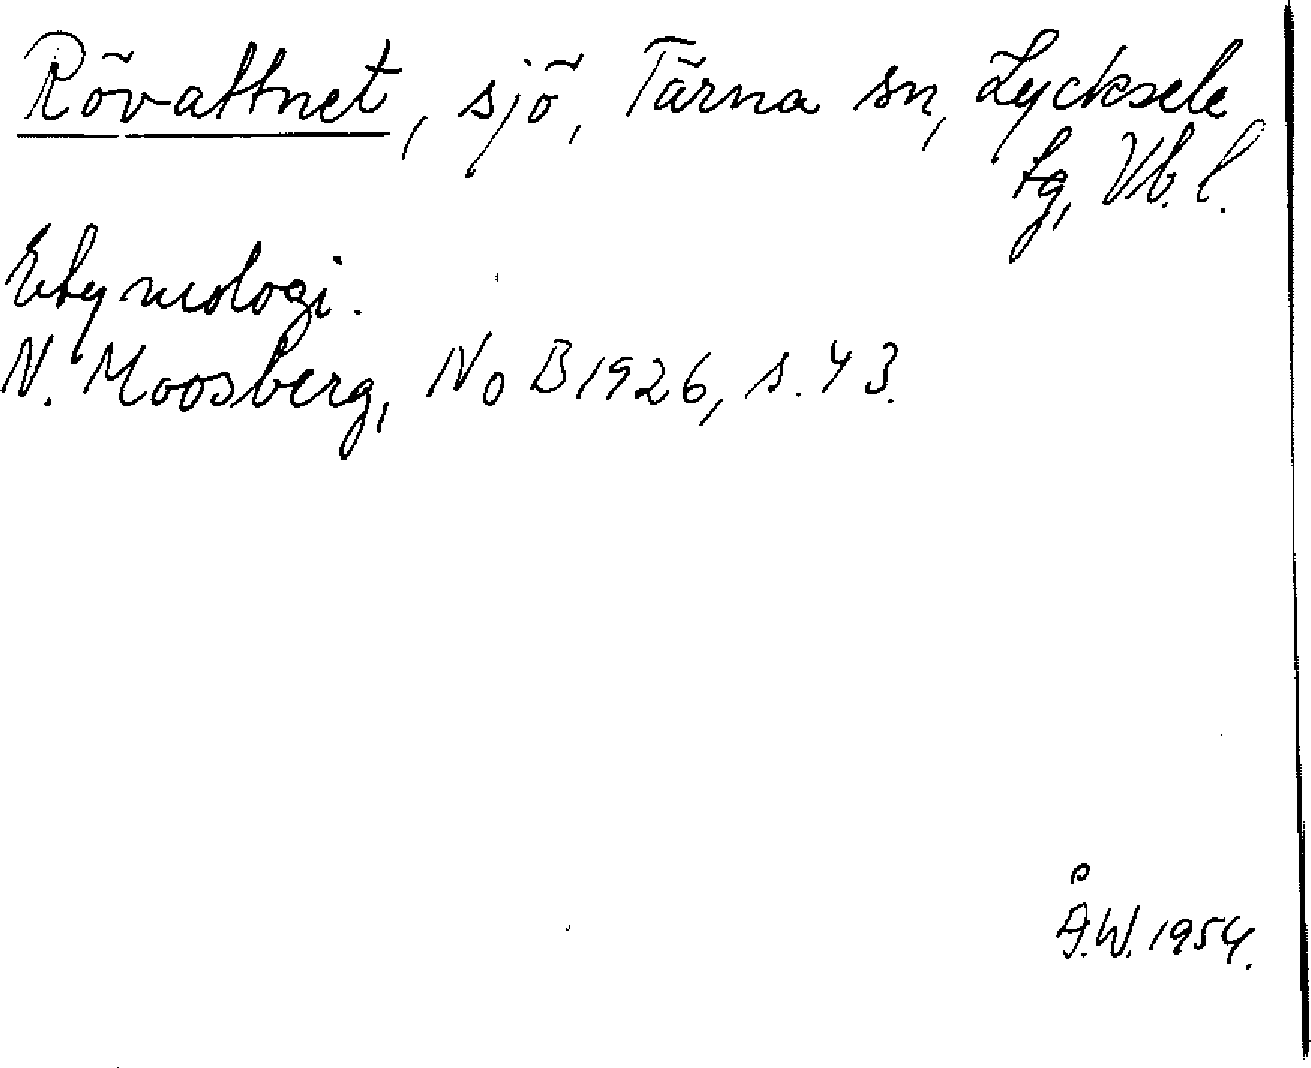 Rövattnet, sjö, Tärna sn, Lycksele
tg, Vb. l.
Etymologi.
N. Moosberg, NoB 1926, s. 43.
Å.W. 1954.